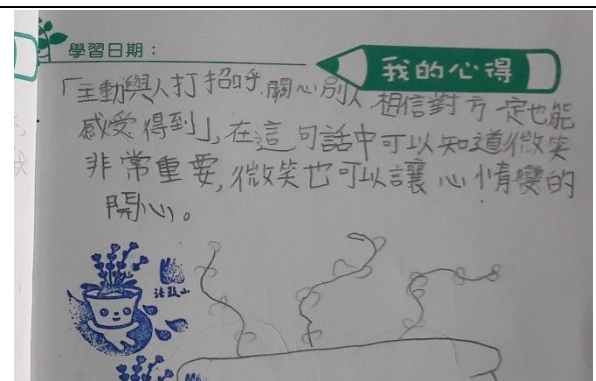 學習日期：
我的心得
「主動與人打招呼.關心別人,相信對方一定也能
感受得到」,在這句話中可以知道微笑
非常重要,微笑也可以讓心情變的
開心。
法鼓山